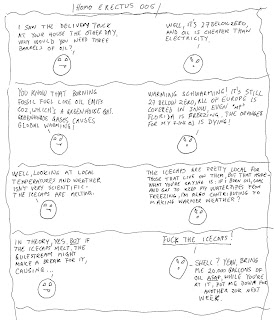 HOMO ERECTUS 005
I SAW THE DELIVERY TRUCK
AT YOUR HOUSE THE OTHER DAY,
WHY WOULD YOU NEED THREE
BARRELS OF OIL?
WELL, IT'S 27 BELOW ZERO,
AND OIL IS CHEAPER THAN
ELECTRICITY
YOU KNOW THAT BURNING
FOSSIL FUELS LIKE OIL EMITS
CO2, WHICH'S A GREENHOUSE GAS.
GREENHOUSE GASES CAUSES
GLOBAL WARMING!
WARMING SCHMARMING! IT'S STILL
27 BELOW ZERO, ALL OF EUROPE IS
COVERED IN SNOW, EVEN
FLORIDA IS FREEZING. THE ORANGES
FOR MY IS DYING!
WELL, LOOKING AT LOCAL
TEMPERATURES AND WEATHER
ISN'T VERY SCIENTIFIC-
THE ICECAPS ARE MELTING.
THE ICECAPS ARE PRETTY LOCAL FOR
THOSE THAT LIVE ON THEM, BUT THAT ASIDE,
WHAT YOU'RE SAYING IS: IF I BURN OIL, COAL
AND GAS TO KEEP MY WATERPIPES FROM
FREEZING, I'M ALSO CONTRIBUTING TO
MAKING WARMER WEATHER?
IN THEORY, YES, BUT IF
THE ICECAPS MELT, THE
GULFSTREAM MIGHT
MAKE A BREAK FOR IT,
CAUSING...
FUCK THE ICECAPS!
SHELL? YEAH, BRING
ME 20,000 GALLONS OF
OIL ASAP, WHILE YOU'RE
AT IT, PUT ME DOWN FOR
ANOTHER 20K NEXT
WEEK.